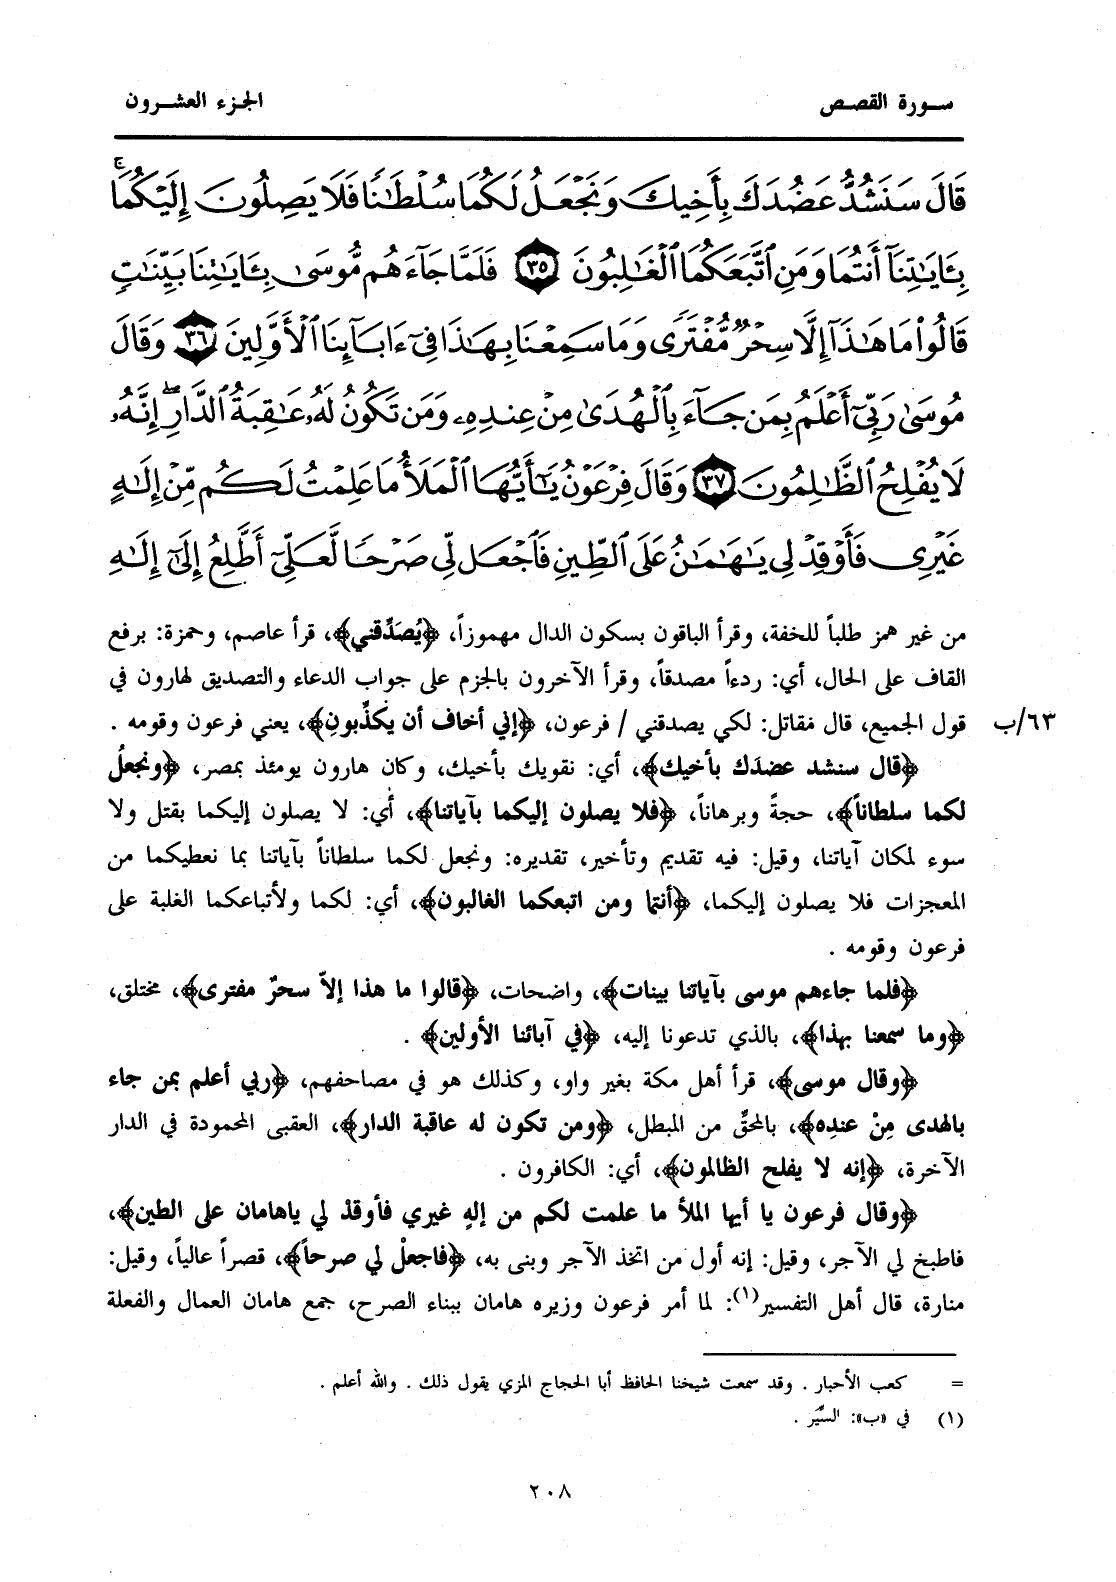 سورة القصص
الجزء العشرون
قَالَ سَنَشُدُّ عَضُدَكَ بِأَخِيكَ وَنَجْعَلُ لَكُمَا سُلْطَانًا فَلَا يَصِلُونَ إِلَيْكُمَا ۚ
بِـَٔايَاتِنَآ أَنتُمَا وَمَنِ ٱتَّبَعَكُمَا ٱلْغَالِبُونَ ٣٥ فَلَمَّا جَآءَهُم مُّوسَىٰ بِـَٔايَاتِنَا بَيِّنَاتٍ
قَالُوا۟ مَا هَٰذَآ إِلَّا سِحْرٌ مُّفْتَرًى وَمَا سَمِعْنَا بِهَٰذَا فِىٓ ءَابَآئِنَا ٱلْأَوَّلِينَ ٣٦ وَقَالَ
مُوسَىٰ رَبِّىٓ أَعْلَمُ بِمَن جَآءَ بِٱلْهُدَىٰ مِنْ عِندِهِۦ وَمَن تَكُونُ لَهُۥ عَٰقِبَةُ ٱلدَّارِ ۖ إِنَّهُۥ
لَا يُفْلِحُ ٱلظَّٰلِمُونَ ٣٧ وَقَالَ فِرْعَوْنُ يَٰٓأَيُّهَا ٱلْمَلَأُ مَا عَلِمْتُ لَكُم مِّنْ إِلَٰهٍ
غَيْرِى فَأَوْقِدْ لِى يَٰهَٰمَٰنُ عَلَى ٱلطِّينِ فَٱجْعَل لِّى صَرْحًا لَّعَلِّىٓ أَطَّلِعُ إِلَىٰٓ إِلَٰهِ
من غير همز طلباً للخفة، وقرأ الباقون بسكون الدال مهموزاً، ﴿يُصَدِّقني﴾، قرأ عاصم، وحمزة: برفع
القاف على الحال، أي: ردءاً مصدقاً، وقرأ الآخرون بالجزم على جواب الدعاء والتصديق لهارون في
قول الجميع، قال مقاتل: لكي يصدقني / فرعون، ﴿إني أخاف أن يكذِّبونِ﴾، يعني فرعون وقومه .
٦٣/ب
﴿قال سنشد عضدَك بأخيك﴾، أي: نقويك بأخيك، وكان هارون يومئذ بمصر، ﴿ونجعلُ
لكما سلطاناً﴾، حجةً وبرهاناً، ﴿فلا يصلون إليكما بآياتنا﴾، أي: لا يصلون إليكما بقتل ولا
سوء لمكان آياتنا، وقيل: فيه تقديم وتأخير، تقديره: ونجعل لكما سلطاناً بآياتنا بما نعطيكما من
المعجزات فلا يصلون إليكما، ﴿أنتما ومن اتبعكما الغالبون﴾، أي: لكما ولأتباعكما الغلبة على
فرعون وقومه .
﴿فلما جاءهم موسى بآياتنا بينات﴾، واضحات، ﴿قالوا ما هذا إلاّ سحرٌ مفترى﴾، مختلق،
﴿وما سمعنا بهذا﴾، بالذي تدعونا إليه، ﴿في آبائنا الأولين﴾ .
﴿وقال موسى﴾، قرأ أهل مكة بغير واو، وكذلك هو في مصاحفهم، ﴿ربي أعلم بمن جاء
بالهدى مِنْ عندِه﴾، بالمحقِّ من المبطل، ﴿ومن تكون له عاقبة الدار﴾، العقبى المحمودة في الدار
الآخرة، ﴿إنه لا يفلح الظالمون﴾، أي: الكافرون .
﴿وقال فرعون يا أيها الملأ ما علمت لكم من إلهٍ غيري فأوقدْ لي ياهامان على الطين﴾،
فاطبخ لي الآجر، وقيل: إنه أول من اتخذ الآجر وبنى به، ﴿فاجعلْ لي صرحاً﴾، قصراً عالياً، وقيل:
منارة، قال أهل التفسير(١): لما أمر فرعون وزيره هامان ببناء الصرح، جمع هامان العمال والفعلة
= كعب الأحبار . وقد سمعت شيخنا الحافظ أبا الحجاج المزي يقول ذلك . والله أعلم .
(١) في «ب»: السِّيَر .
٢٠٨